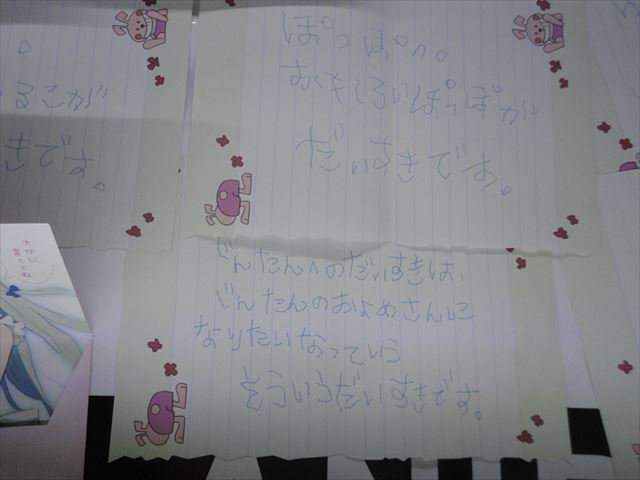 るこが
きです。
ぽっぽへ。
おもしろいぽっぽが
だいすきです。
じんたんへのだいすきは、
じんたんのおよめさんに
なりたいなっていう
そういうだいすきです。
大切に
育ててね